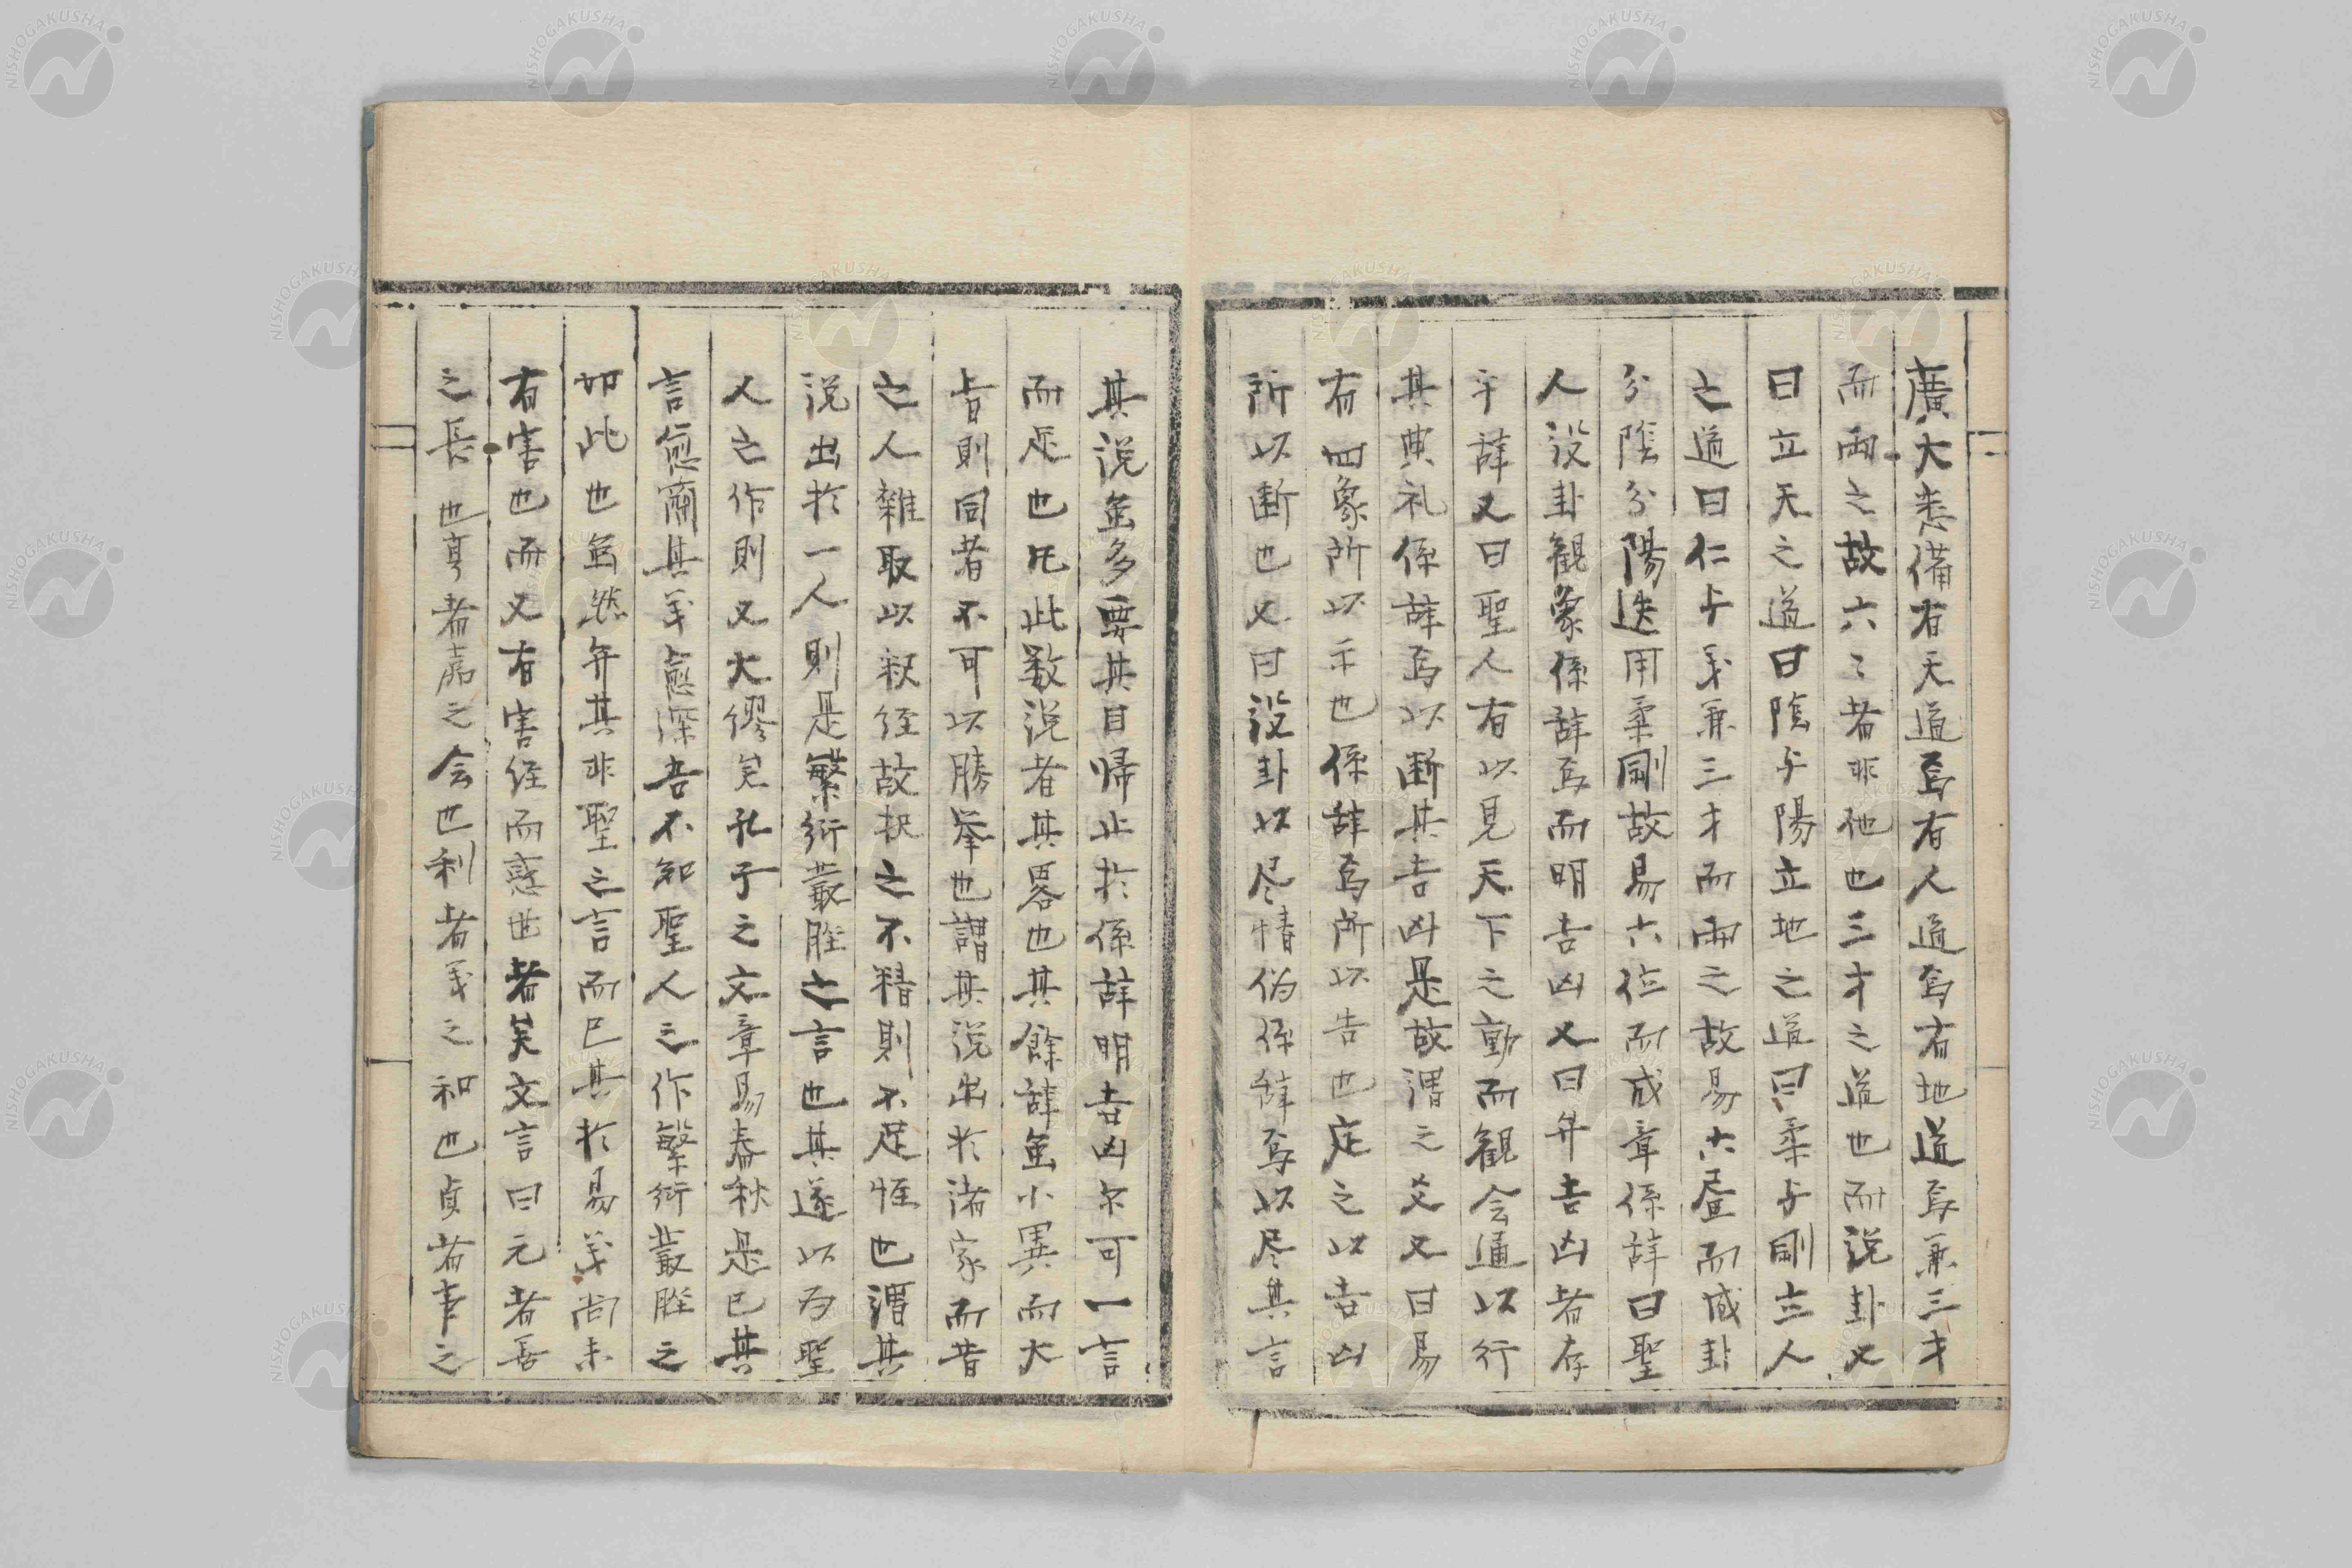 廣大悉備有天道焉有人道焉有地道焉兼三才
而両之故六〻者非他也三才之道也而説卦又
曰立天之道曰陰与陽立地之道曰柔与剛立人
之道曰仁与義兼三才而両之故易六昼而成卦
分陰分陽迭用柔剛故易六位而成章係辞曰聖
人設卦観象係辞焉而明吉凶又曰弁吉凶者存
乎辞又曰聖人有以見天下之動而観会通以行
其典礼係辞焉以断其吉凶是故謂之爻又曰易
有四象所以示也係辞焉所以告也定之以吉凶
所以断也又曰設卦以尽情偽係辞焉以尽其言
其説虽多要其目帰止於係辞明吉凶尓可一言
而足也凡此数説者其畧也其餘辞虽小異而大
旨則同者不可以勝挙也謂其説出於諸家而昔
之人雜取以釈経故択之不精則不足恠也謂其
説出於一人則是繁衍叢脞之言也其遂以為聖
人之作則又大繆矣孔子之文章易春秋是已其
言愈簡其義愈深吾不知聖人之作繁衍叢脞之
如此也虽然弁其非聖之言而已其於易義尚未
有害也而又有害経而惑世者矣文言曰元者善
之長也亨者嘉之会也利者義之和也貞者事之
NISHOGAKUSHA